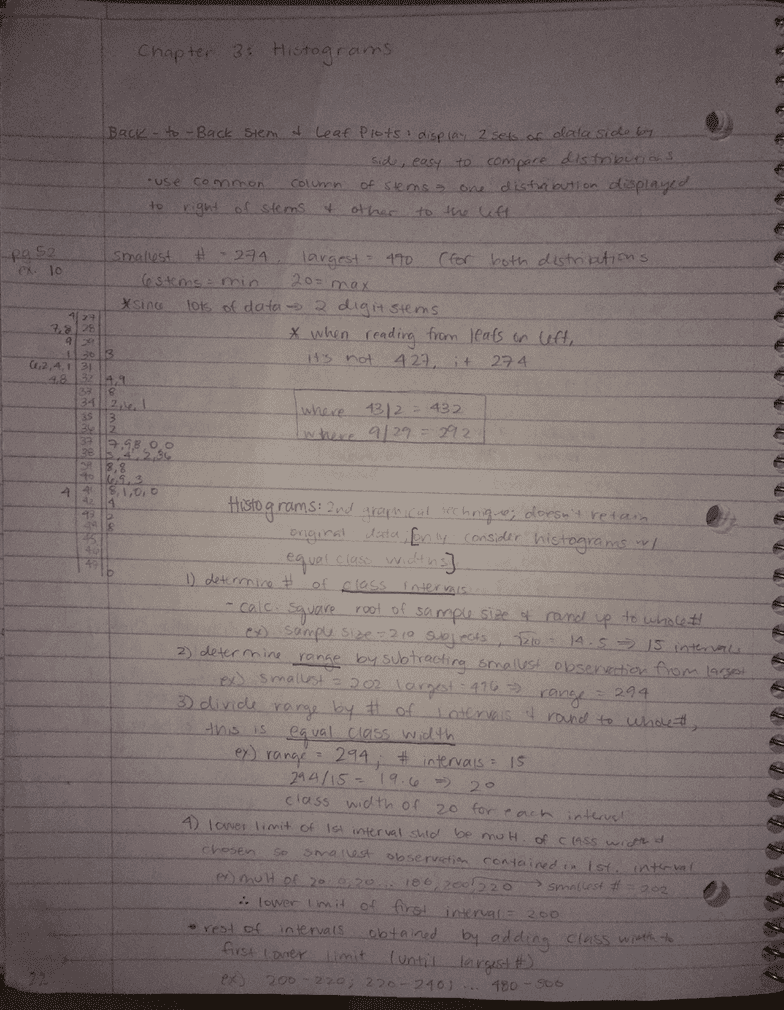 Chapter 3: Histograms
Back-to-Back Stem & Leaf Plots: display 2 sets of data side by
side, easy to compare distributions
-use common column of stems → one distribution displayed
to right of stems & other to the left
pg 52
ex. 10
smallest # = 274, largest = 490 (for both distributions
6 stems = min 20 = max
* since lots of data → 2 digit stems
4 | 27
7,8 | 28
9 | 29
1 | 30 | 3
6,2,4,1 | 31
4,8 | 32 | 4,9
33 | 8
34 | 2,6,1
35 | 3
36 | 2
37 | 7,9,8,0,0
38
39 | 8,8
40 | 6,5,3
4 | 41 | 8,1,0,0
42 | 4
43 | 2
44 | 8
45
46
49 | 0
* when reading from leafs on left,
its not 427, it 274
where 43|2 = 432
where 9/29 = 292
Histograms: 2nd graphical technique; doesn't retain
original data, [only consider histograms w/
equal class widths]
1) determine # of class intervals
- calc. square root of sample size & round up to whole #
ex) sample size = 210 subjects, √210 = 14.5 ⇒ 15 intervals
2) determine range by subtracting smallest observation from largest
ex) smallest = 202 largest = 496 ⇒ range = 294
3) divide range by # of intervals & round to whole #,
this is equal class width
ex) range = 294, # intervals = 15
294/15 = 19.6 ⇒ 20
class width of 20 for each interval
4) lower limit of 1st interval shld be mult. of class width &
chosen so smallest observation contained in 1st. interval
ex) mult of 20 0,20... 180, 200, 220 → smallest # = 202
∴ lower limit of first interval = 200
* rest of intervals obtained by adding class width to
first lower limit (until largest #)
ex) 200-220; 220-240; ... 480-500
32